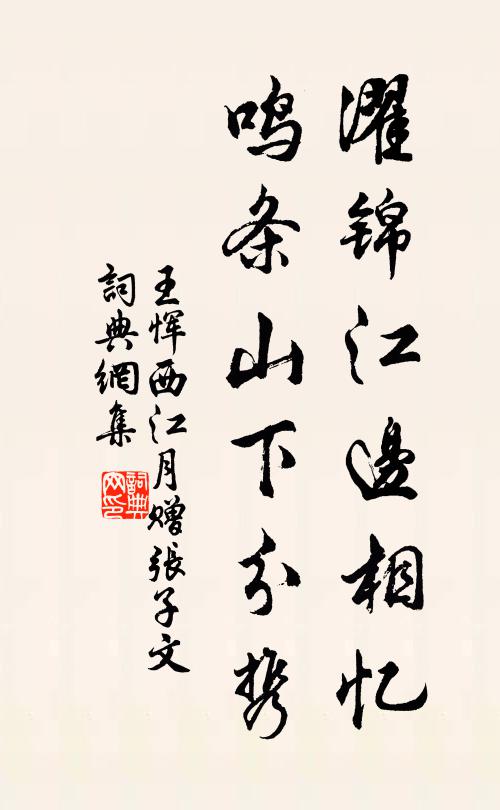 濯锦江邊相忆
鸣条山下分携
王恽西江月赠張子文
詞典網集
詞典
网印